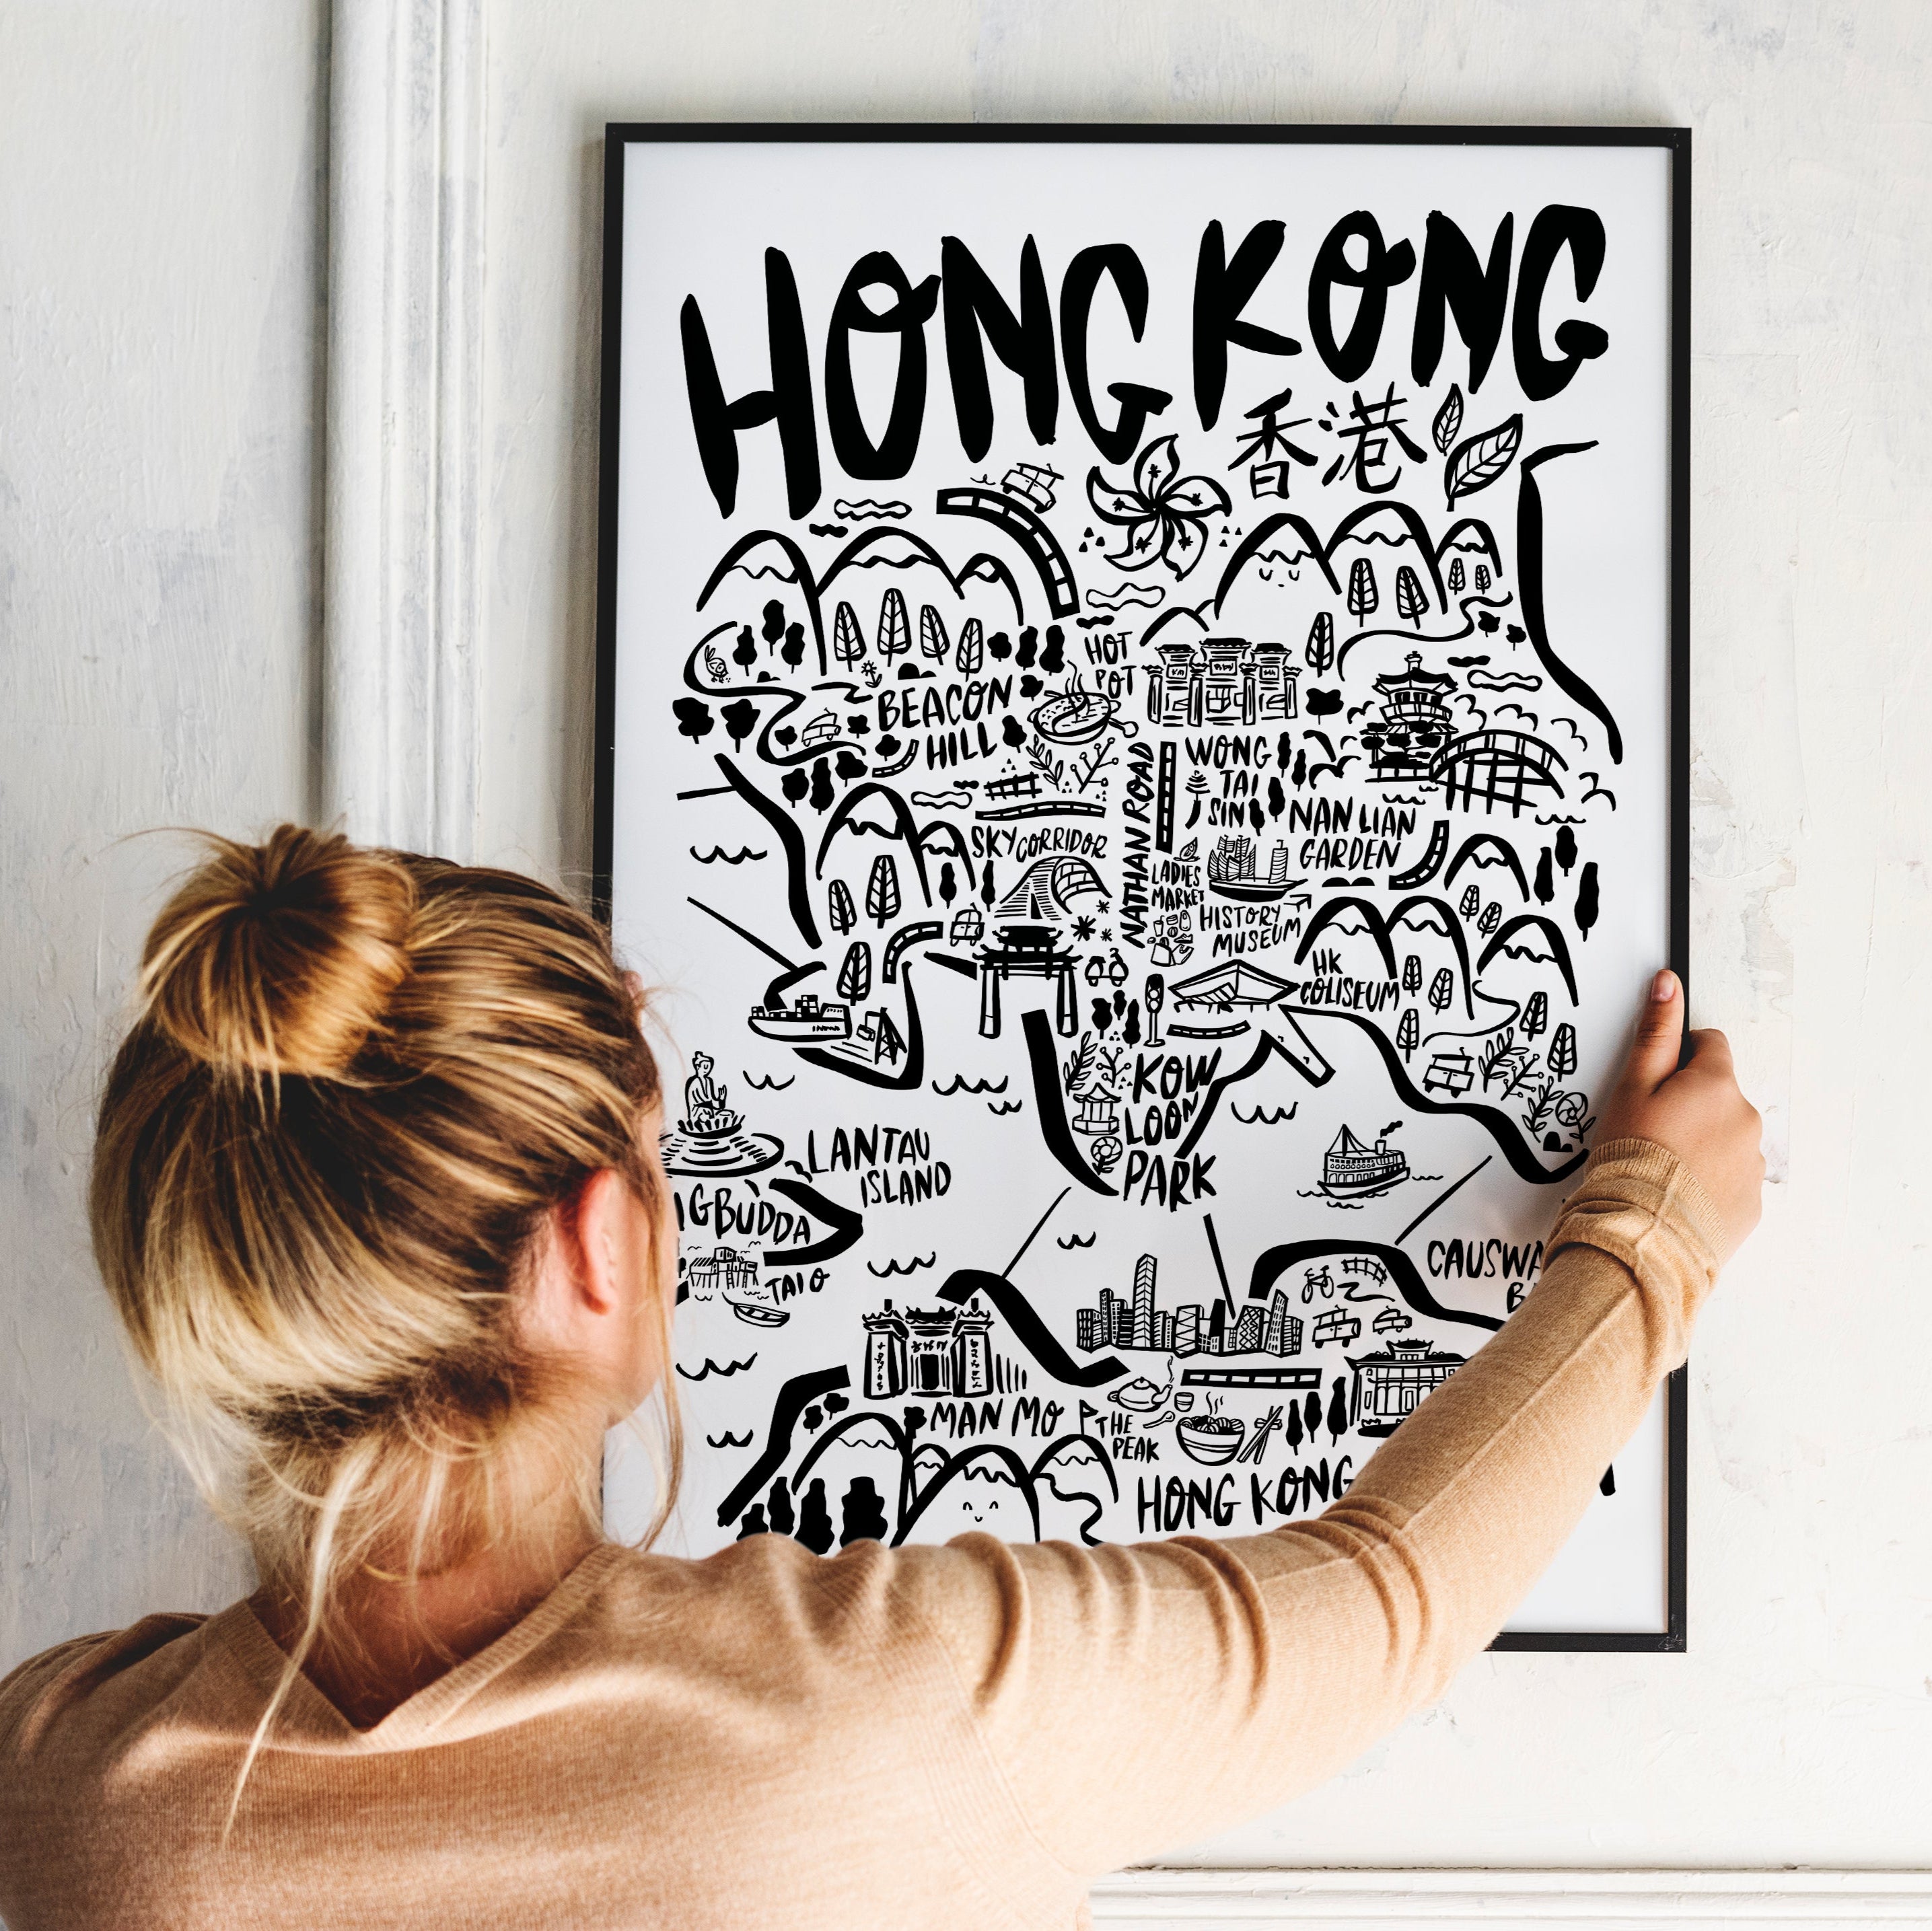 HONG KONG
香港
HOT
POT
BEACON
HILL
NATHAN ROAD
WONG
TAI
SIN
NAN LIAN
GARDEN
SKY CORRIDOR
LADIES
MARKET
HISTORY
MUSEUM
HK
COLISEUM
KOW
LOON
PARK
LANTAU
ISLAND
BUDDA
TAI O
MAN MO
THE
PEAK
HONG KONG